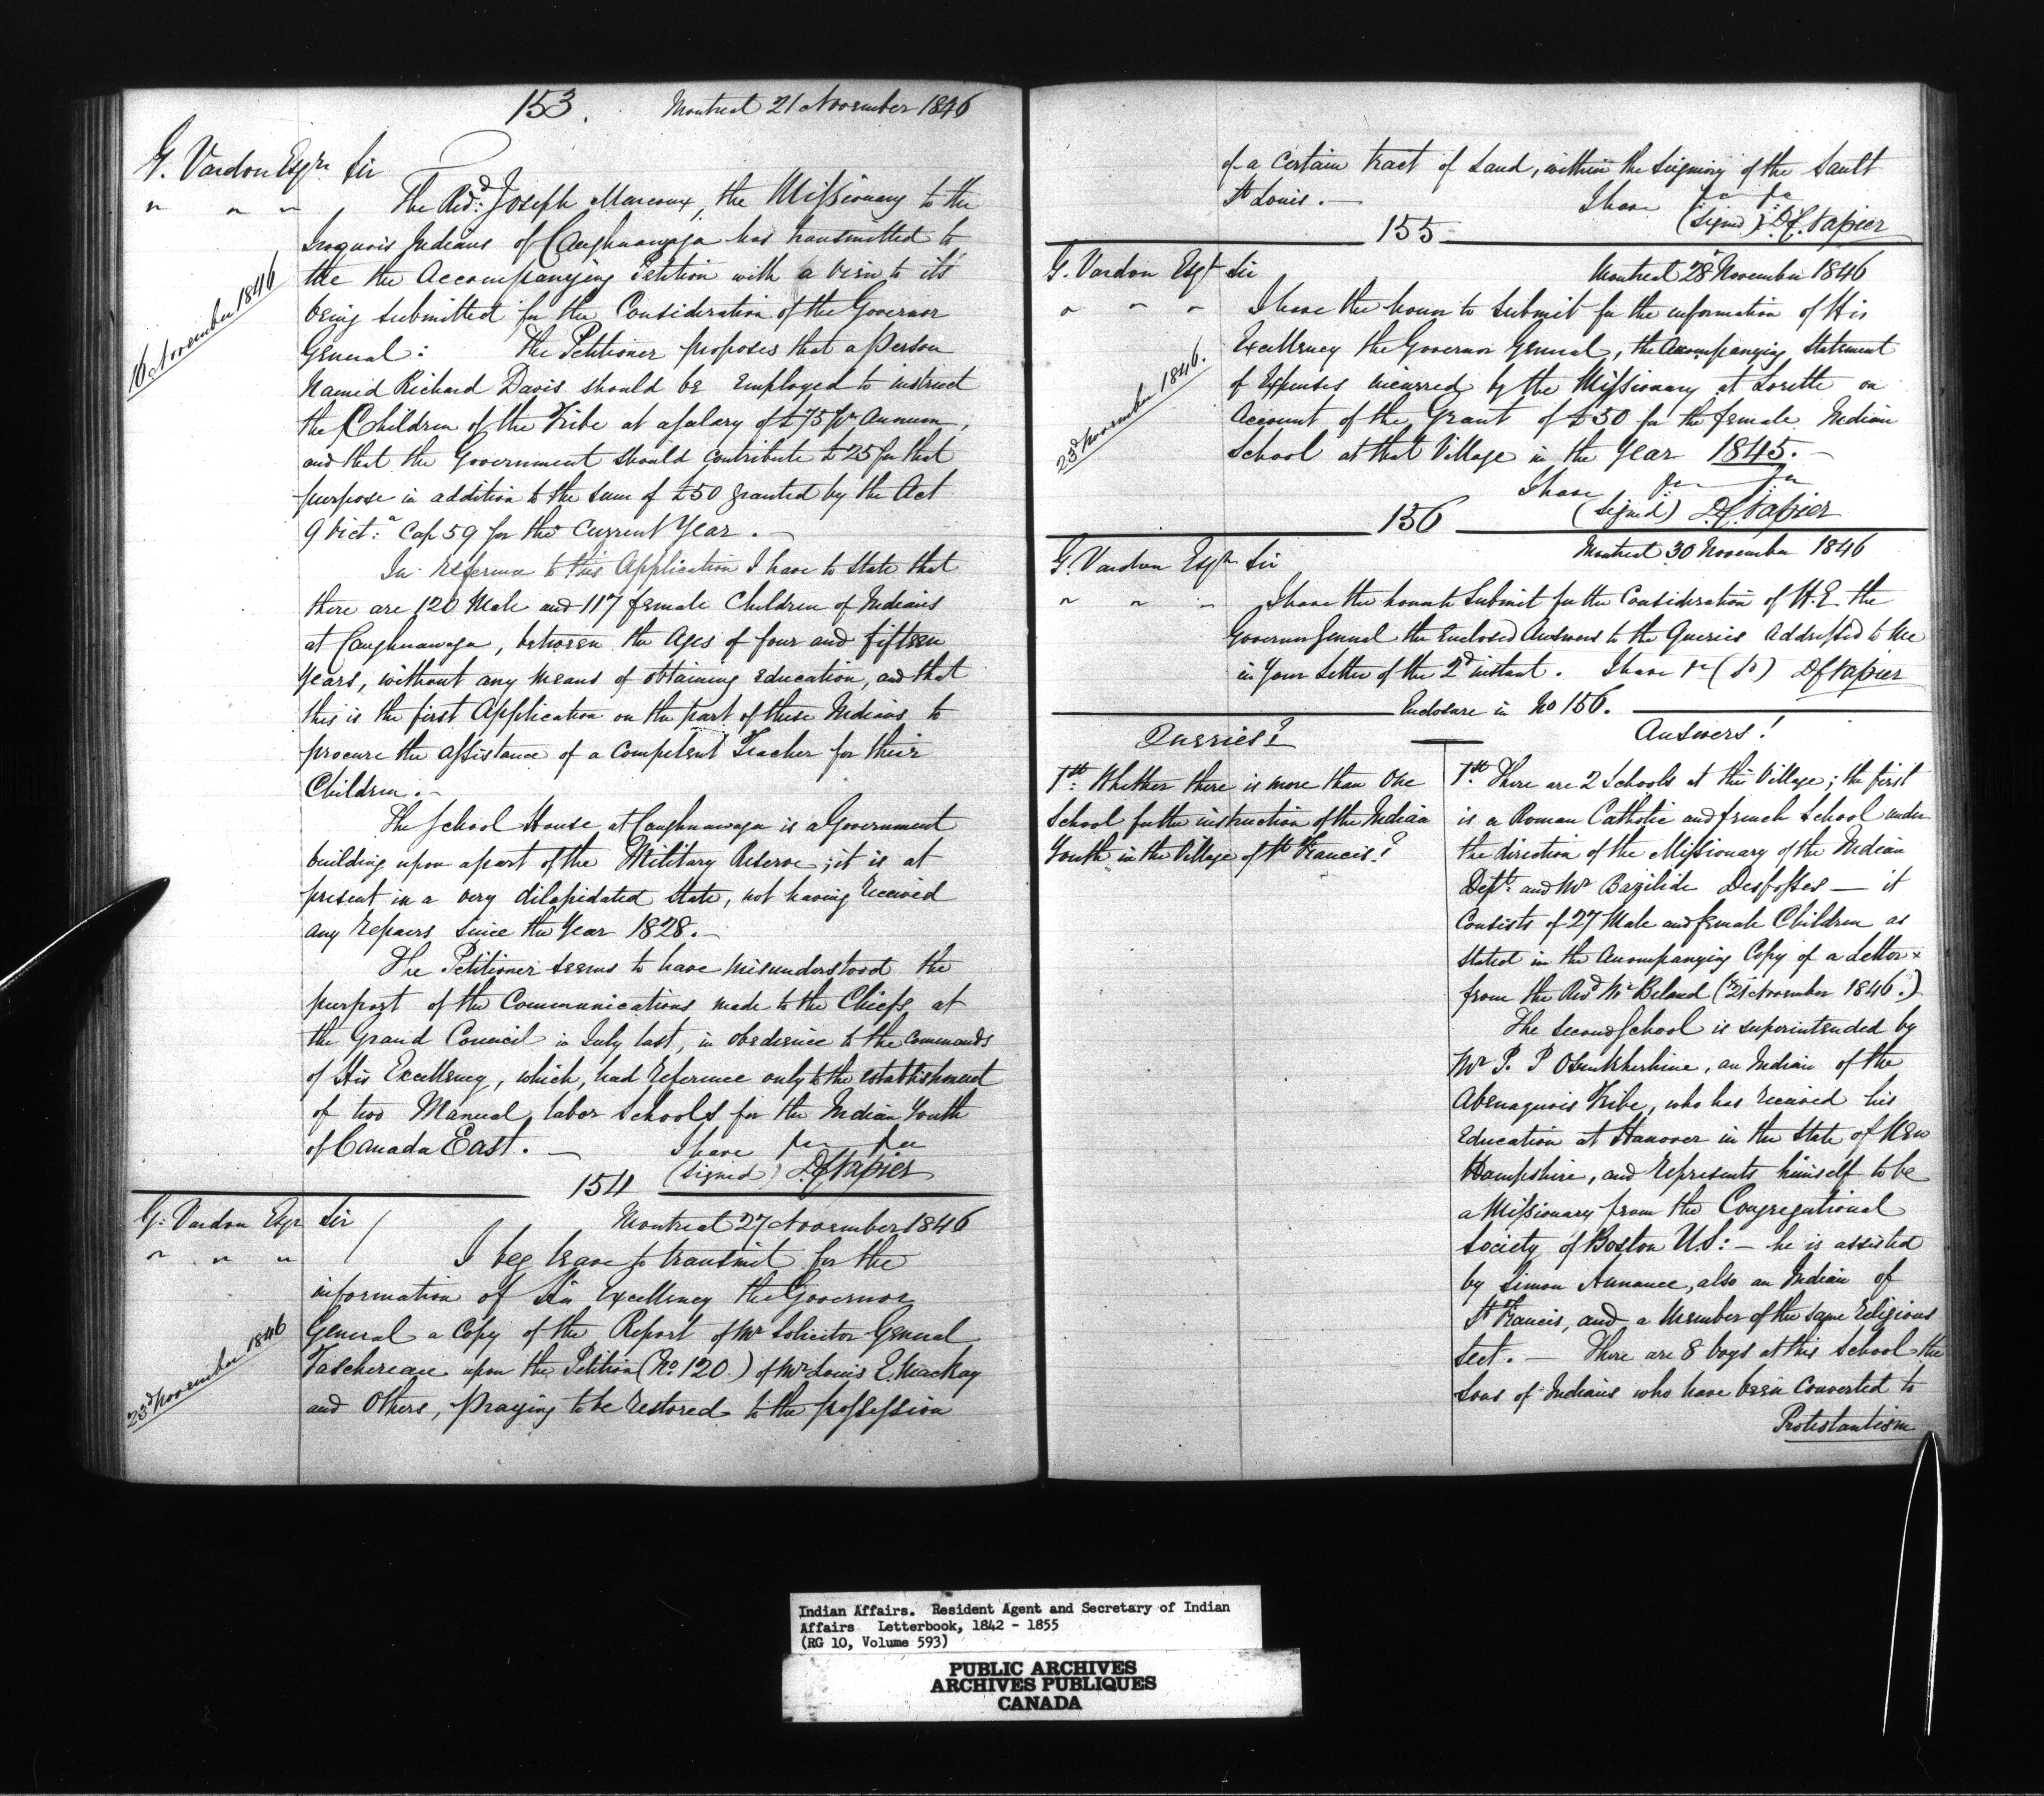 153. Montreal 21 November 1846
G. Vardon Esqre Sir
" " " The Revd: Joseph Marcoux, the Missionary to the
Iroquois Indians of Caughnawaga has transmitted to
16 November 1846
me the Accompanying Petition with a view to its
being submitted for the Consideration of the Governor
General: The Petitioner proposes that a person
Named Richard Davis should be Employed to instruct
the Children of the Tribe at a salary of £75 pr Annum,
and that the Government should Contribute £25 for that
purpose in addition to the sum of £50 granted by the Act
9 Vict:a Cap 59 for the Current Year.—
In reference to this Application I have to State that
there are 120 Male and 117 female Children of Indians
at Caughnawaga, between the Ages of four and fifteen
Years, without any means of obtaining Education, and that
this is the first Application on the part of these Indians to
procure the assistance of a Competent Teacher for their
Children.—
The School House at Caughnawaga is a Government
building upon a part of the Military Reserve; it is at
present in a very dilapidated State, not having Received
any Repairs since the Year 1828.—
The Petitioner seems to have misunderstood the
purport of the Communications made to the Chiefs at
the Grand Council in July last, in obedience to the Commands
of His Excellency, which, had Reference only to the establishment
of two Manual labor Schools for the Indian Youth
of Canada East.— I have &c &c
(signed) D.C. Napier
154
G: Vardon Esqr Sir Montreal 27 November 1846
" " " I beg leave to transmit for the
information of His Excellency the Governor
23d November 1846
General a Copy of the Report of Mr Solicitor General
Taschereau upon the Petition (No. 120) of Mr Louis E. Mackay
and Others, praying to be Restored to the possession
of a Certain tract of Land, within the Seigniory of the Sault
St Louis.— I have &c &c
(signed) D.C. Napier
155
G. Vardon Esqr Sir Montreal 28 November 1846
" " " I have the honor to Submit for the information of His
Excellency the Governor General, the Accompanying Statement
23d November 1846.
of Expenses incurred by the Missionary at Lorette on
Account of the Grant of £50 for the female Indian
School at that Village in the Year 1845.—
I have &c &c
(signed) D.C. Napier
156
Montreal 30 November 1846
G. Vardon Esqr Sir
" " " I have the honor to Submit for the Consideration of H.E. the
Governor General the Enclosed Answers to the Queries Addressed to Me
in Your Letter of the 2d instant. I have &c (Sd) D C Napier
Enclosure in No 156.
Queries?
1st: Whether there is more than One
School for the instruction of the Indian
Youth in the Village of St Francis?
Answers!
1st. There are 2 Schools at this Village; the first
is a Roman Catholic and french School under
the direction of the Missionary of the Indian
Dept: and Mr Bazilide Desfosses — it
Consists of 27 Male and female Children as
stated in the Accompanying Copy of a Letter x
from the Revd Mr Beland (x 21 November 1846.)
The second School is superintended by
Mr P. P Osunkherhine, an Indian of the
Abenaquois Tribe, who has Received his
Education at Hanover in the State of New
Hampshire, and Represents himself to be
a Missionary from the Congregational
Society of Boston U.S:— he is assisted
by Simon Annance, also an Indian of
St Francis, and a Member of the same Religious
Sect.— There are 8 boys at this School the
Sons of Indians who have been Converted to
Protestantism
Indian Affairs. Resident Agent and Secretary of Indian
Affairs Letterbook, 1842 - 1855
(RG 10, Volume 593)
PUBLIC ARCHIVES
ARCHIVES PUBLIQUES
CANADA